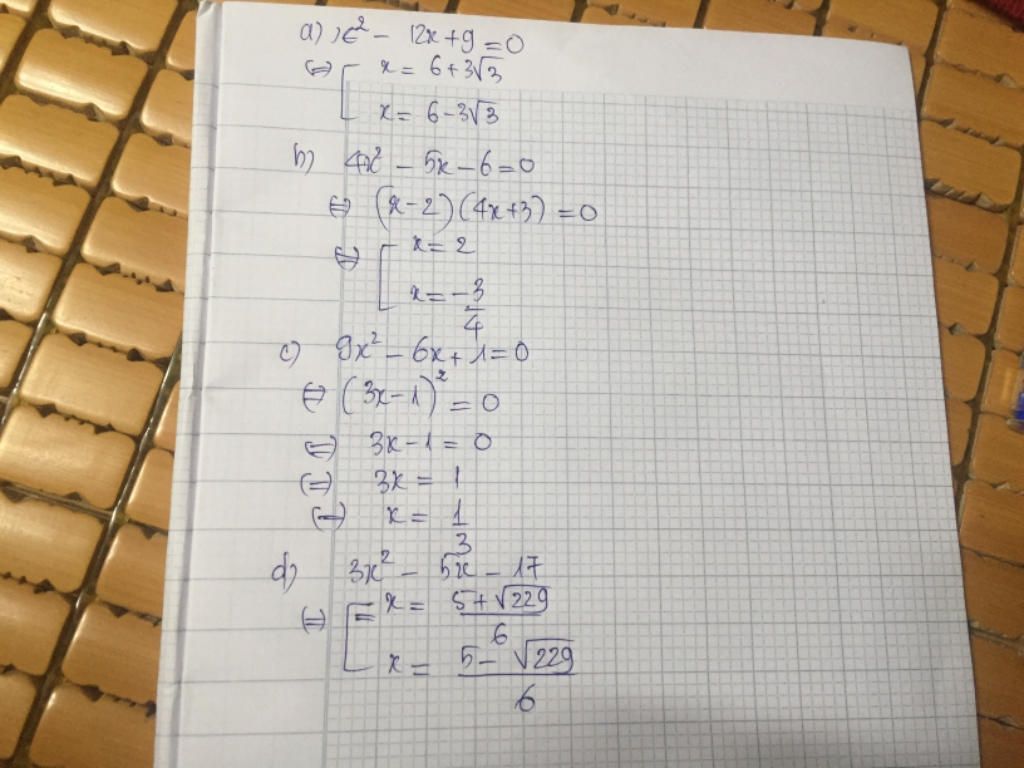 a) x² - 12x + 9 = 0
(=) [ x = 6 + 3√3
x = 6 - 3√3
b) 4x² - 5x - 6 = 0
(=) (x - 2)(4x + 3) = 0
(=) [ x = 2
x = -3/4
c) 9x² - 6x + 1 = 0
(=) (3x - 1)² = 0
(=) 3x - 1 = 0
(=) 3x = 1
(=) x = 1/3
d) 3x² - 5x - 17
(=) [ x = (5 + √229)/6
x = (5 - √229)/6